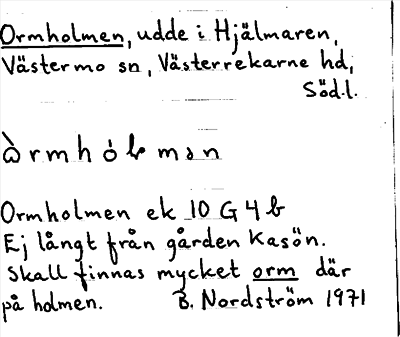 Ormholmen, udde i Hjälmaren,
Västermo sn, Västerrekarne hd,
Söd.l.
òrmhólmən
Ormholmen ek 10 G 4 b
Ej långt från gården Kasön.
Skall finnas mycket orm där
på holmen. B. Nordström 1971